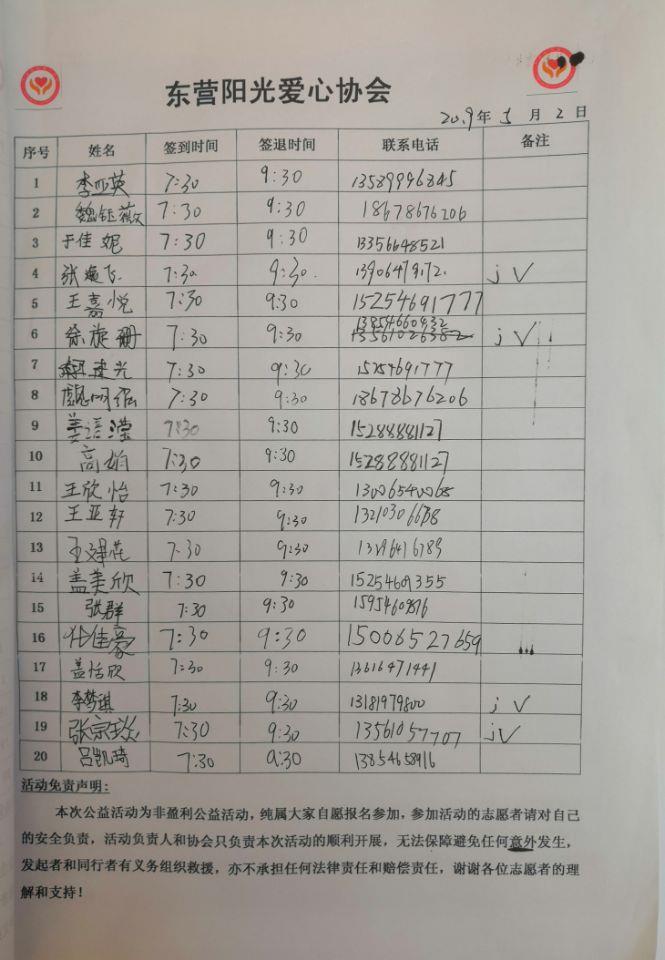 东营阳光爱心协会
2019年5月2日
序号 姓名 签到时间 签退时间 联系电话 备注
1 李亚英 7:30 9:30 13589946845
2 魏钰薇 7:30 9:30 18678676206
3 于佳妮 7:30 9:30 13356648521
4 张 飞 7:30 9:30. 13906479172. j √
5 王嘉悦 7:30 9:30 15254691777
6 徐旋珊 7:30 9:30 13854660832 j √
7 建光 7:30 9:30 15254691777
8 魏 7:30 9:30 18678676206
9 姜 滢 7:30 9:30 15288881127
10 高娟 7:30 9:30 15288881127
11 王欣怡 7:30 9:30 13006540068
12 王亚轩 7:30 9:30
13 王 花 7:30 9:30
14 盖美欣 7:30 9:30 15254609355
15 张群 7:30 9:30
16 佳豪 7:30 9:30 15006527659
17 盖恬欣 7:30 9:30 13616471441
18 李梦琪 7:30 9:30 13181979800 j √
19 张宗 7:30 9:30 13561057707 j√
20 吕凯琦 7:30 9:30 13854658916
活动免责声明:
本次公益活动为非盈利公益活动，纯属大家自愿报名参加，参加活动的志愿者请对自己
的安全负责，活动负责人和协会只负责本次活动的顺利开展，无法保障避免任何意外发生，
发起者和同行者有义务组织救援，亦不承担任何法律责任和赔偿责任，谢谢各位志愿者的理
解和支持！